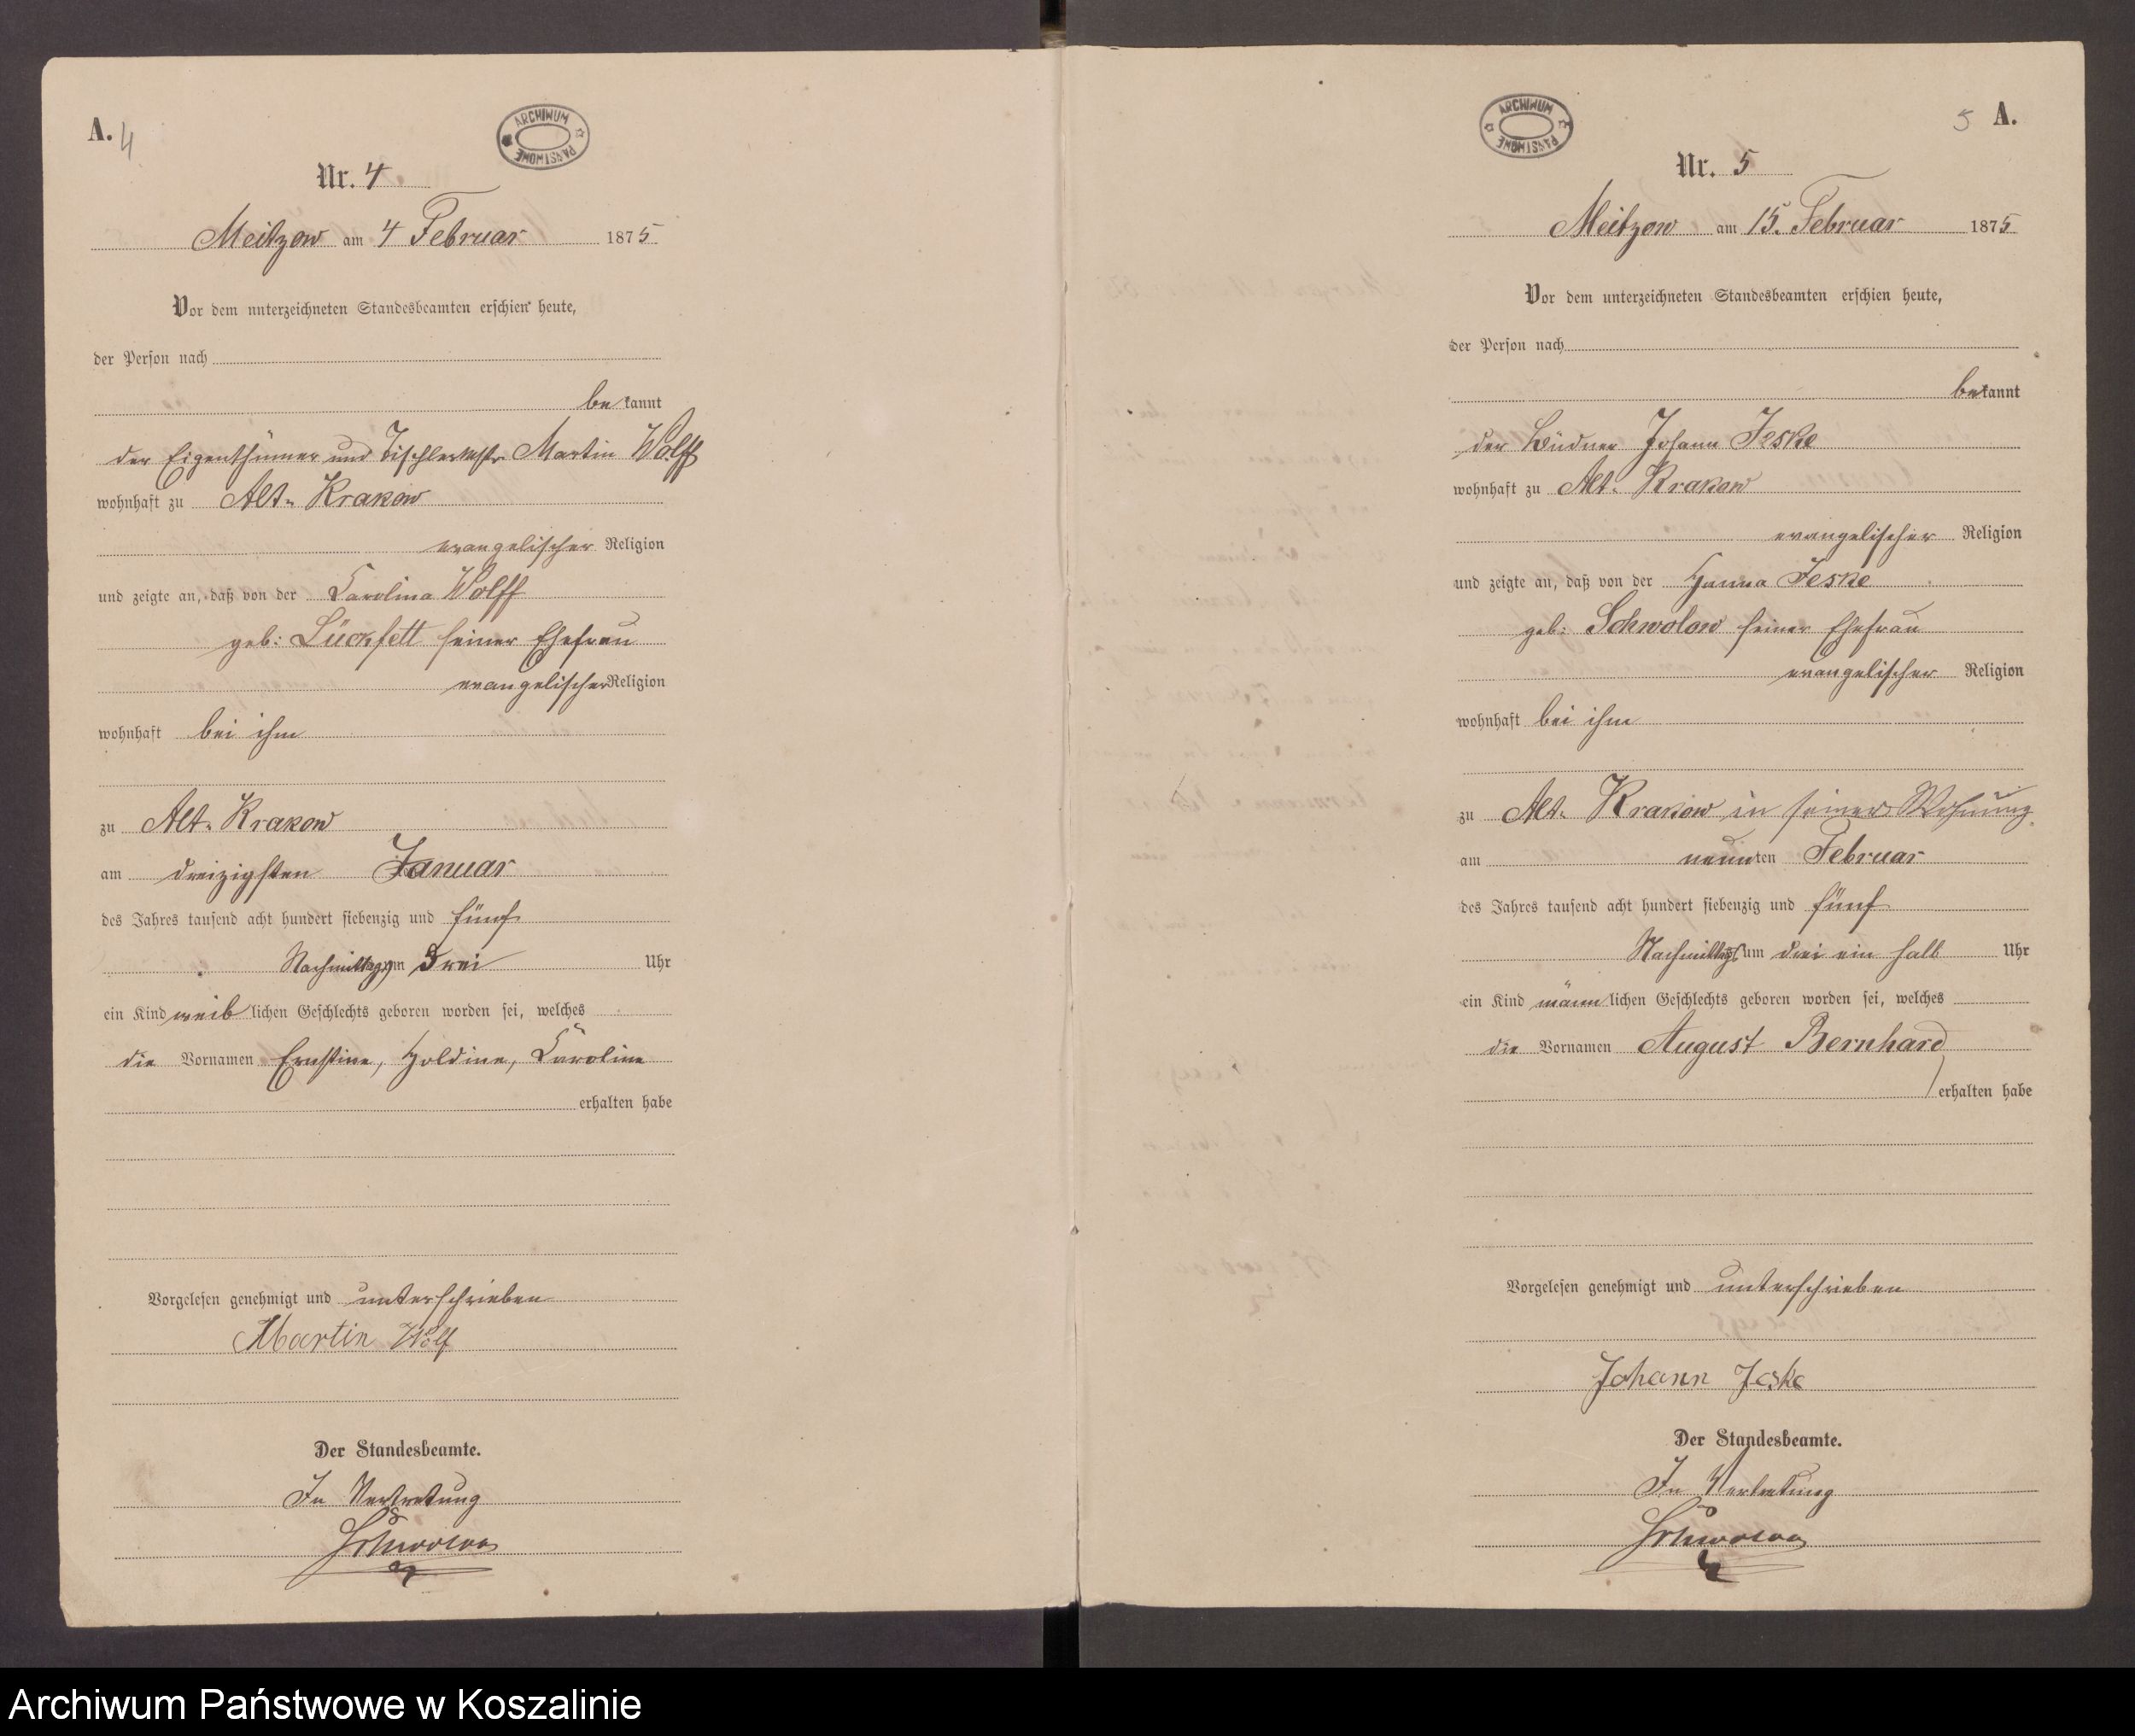 A. 4
ARCHIWUM PAŃSTWOWE
Nr. 4
Meitzow am 4 Februar 1875
Vor dem unterzeichneten Standesbeamten erschien heute,
der Person nach
bekannt
der Eigenthümer und Tischlermstr Martin Wolff
wohnhaft zu Alt-Krakow
evangelischer Religion
und zeigte an, daß von der Carolina Wolff
geb: Lückfett seiner Ehefrau
evangelischer Religion
wohnhaft bei ihm
zu Alt-Krakow
am dreizigsten Januar
des Jahres tausend acht hundert siebenzig und fünf
Nachmittags um Drei Uhr
ein Kind weiblichen Geschlechts geboren worden sei, welches
die Vornamen Ernstine, Holdine, Caroline
erhalten habe
Vorgelesen genehmigt und unterschrieben
Martin Wolf
Der Standesbeamte.
In Vertretung
Schwolow
5 A.
ARCHIWUM PAŃSTWOWE
Nr. 5
Meitzow am 15. Februar 1875
Vor dem unterzeichneten Standesbeamten erschien heute,
der Person nach
bekannt
der Büdner Johann Jeske
wohnhaft zu Alt-Krakow
evangelischer Religion
und zeigte an, daß von der Hanna Jeske
geb: Schwolow seiner Ehefrau
evangelischer Religion
wohnhaft bei ihm
zu Alt-Krakow in seiner Wohnung
am neunten Februar
des Jahres tausend acht hundert siebenzig und fünf
Nachmittags um drei ein halb Uhr
ein Kind männlichen Geschlechts geboren worden sei, welches
die Vornamen August Bernhard
erhalten habe
Vorgelesen genehmigt und unterschrieben
Johann Jeske
Der Standesbeamte.
In Vertretung
Schwolow
Archiwum Państwowe w Koszalinie